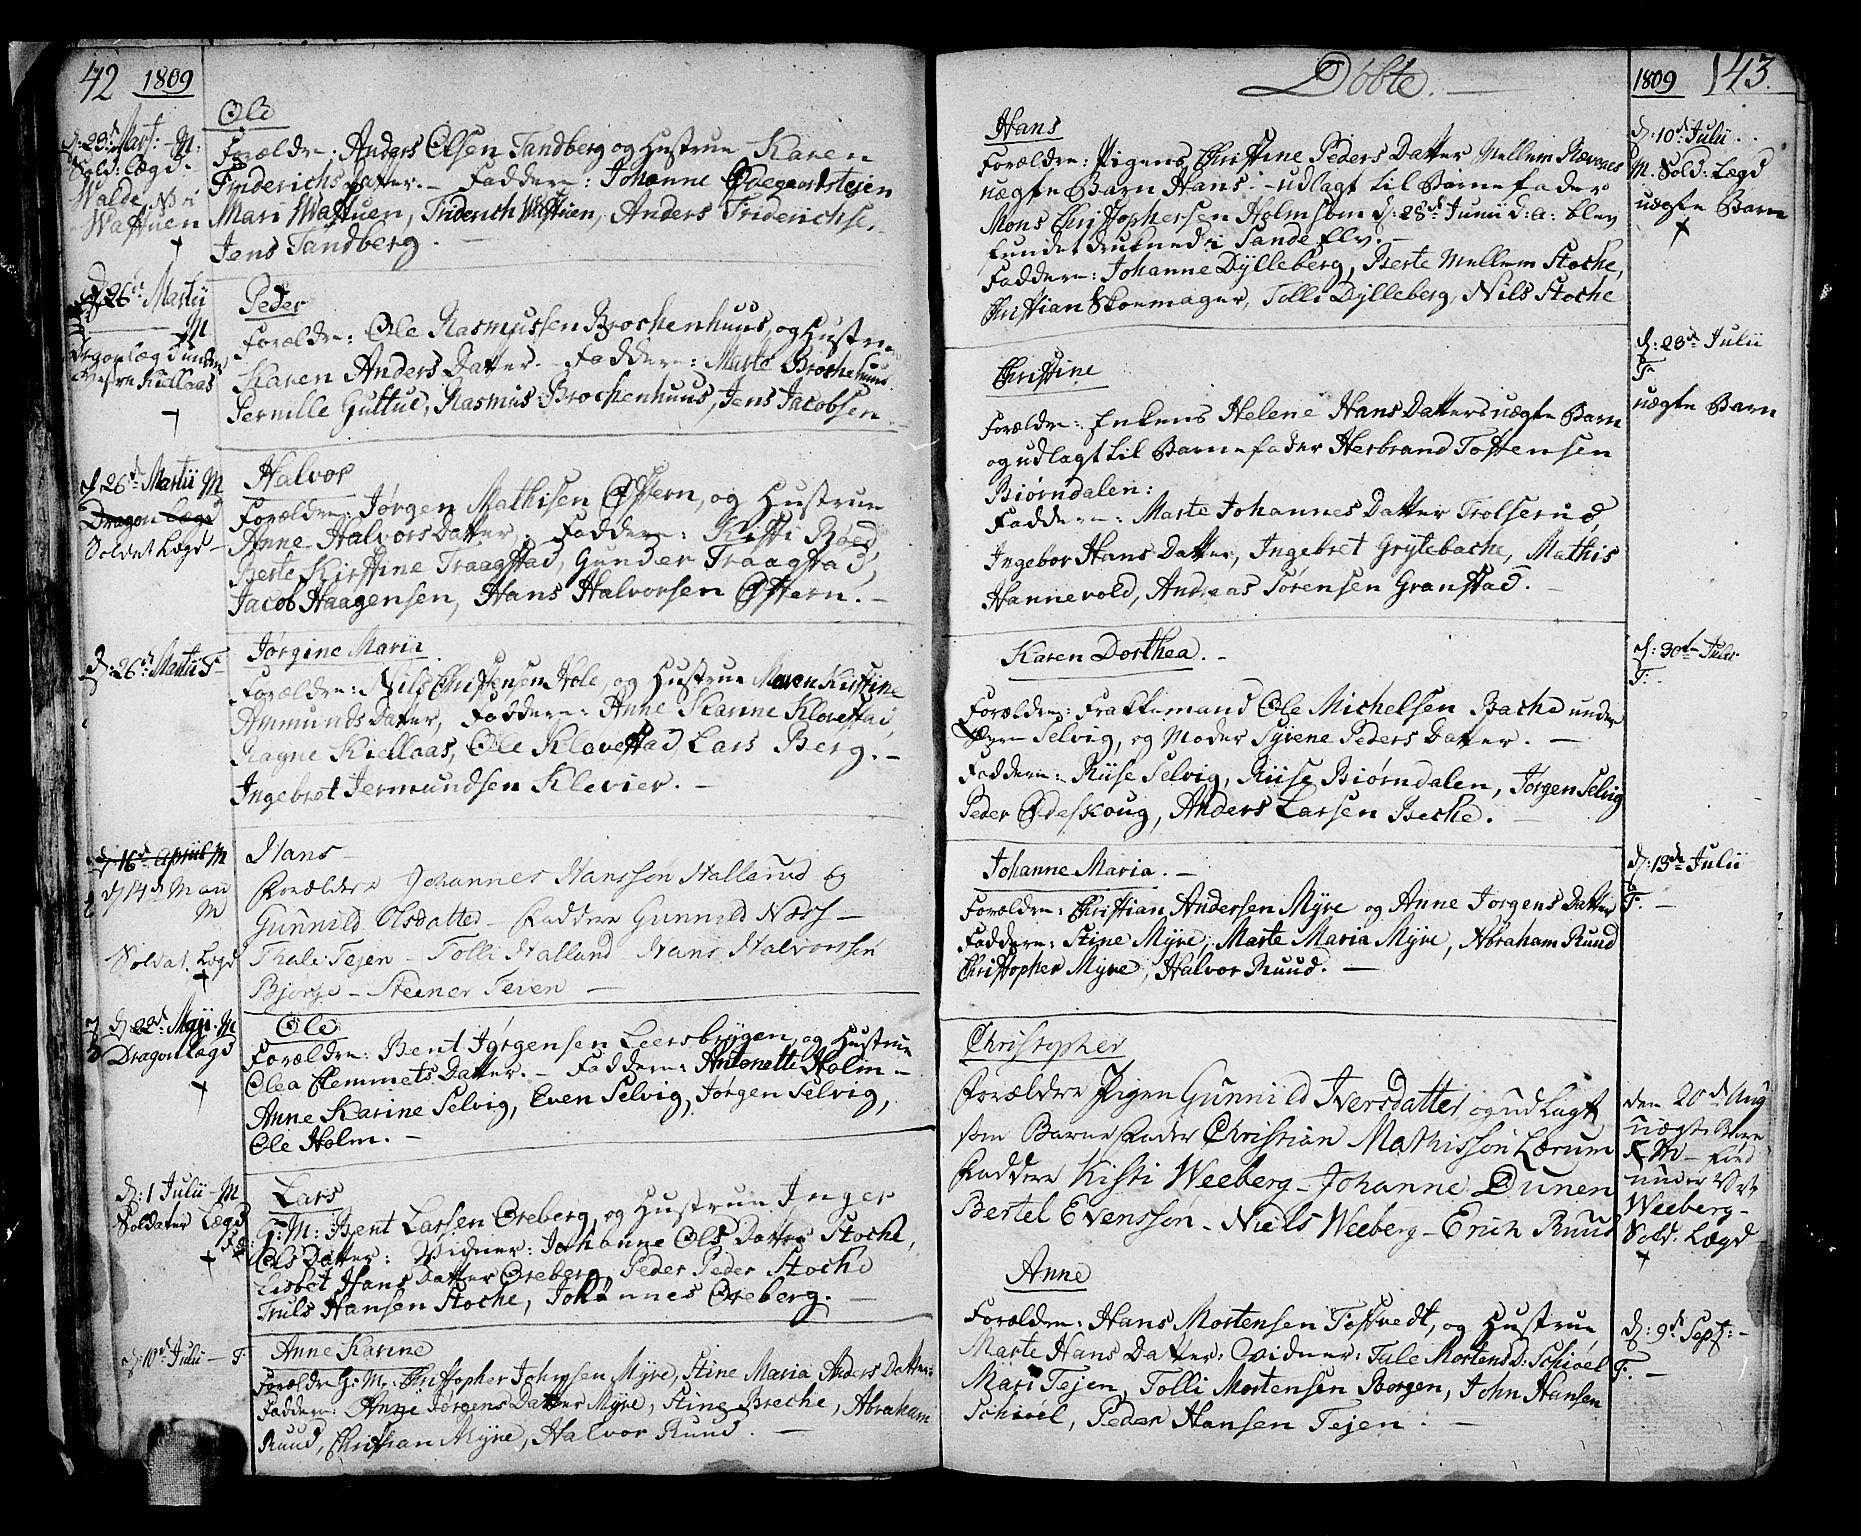 42 1809
d: 23d Mart: – M:
Sold: Lægd.
Walde, N: i
Waffuen
Ole
Forældre: Anders Olsen Sandberg og Hustrue Karen
Friderichs Datter. – Faddere: Johanne Ødegaardstejen
Mari Waffuen, Friderich Waffuen, Anders Friderichse,
Jens Sandberg. –
d: 26d Martii
M
Dragonlægd under
Westre Kiellaas
Peder
Forældre: Ole Rasmussen Brochenhuus, og Hustrue
Karen Anders Datter. – Faddere: Marte Brochehuus
Pernille Guttue, Rasmus Brochenhuus, Jens Jacobsen
d: 26d Martii M
Dragon Lægd
Soldat Lægd –
Halvor
Forældre: Jørgen Mathisen Østern, og Hustrue
Anne Halvors Datter, Faddere: Kisti Røed,
Berte Kirstine Traagstad, Gunder Traagstad,
Jacob Haagensen, Hans Halvorsen Østern. –
d: 26d Martii F –
Jørgine Maria
Forældre: Nils Christensen Hole, og Hustrue Maren Kirstine
Ammunds Datter, Faddere: Anne Karine Klovestad,
Ragne Kiellaas, Ole Klovestad Lars Berg. –
Ingebret Jermundsen Klevier. –
d. 16d Aprill M
d 14d M
M
Soldat. Lægd
Hans
Forældre Johannes Hansson Hallerud og
Gunnild Olsdatter – Faddere Gunnild Næss –
Thale Tejen – Tolli Halland Hans Halvorssen
Bjorge – Steener Teien –
d: 22d Maji. M
Dragon Lægd
Ole
Forældre: Bent Jørgensen Leersbrygen, og Hustrue
Olea Clemmets Datter. – Faddere: Antonette Holm –
Anne Karine Selvig, Even Selvig, Jørgen Selvig,
Ole Holm. –
d: 1 Julii – M
Soldater Lægd
Lars
F: M: Bent Larsen Oreberg, og Hustrue Inger
Ols Datter: Vidner: Johanne Ols Datter Stoche,
Lisbet Hans Datter Oreberg, Peder Peder Stoche
Truls Hansen Stoche, Johannes Oreberg. –
d: 10d Julii – F
Anne Karine
Forældre G: M: Christopher Johnsen Myre, Stine Maria Anders Datter.
Faddere: Anne Jørgens Datter Myre, Stine Breche, Abraham
Ruud, Christian Myre, Halvor Ruud. –
Döbte. – 1809 143.
Hans
Forældre: Pigens Christine Peders Datter Mellem Revenes
uægte Barn Hans. – udlagt til Barnefader
Mons Christophersen Holmsbon d: 28d Junii d: a: blev
fundet drukned i Sande Elv. –
Faddere: Johanne Dylleberg, Berte Mellem Stoche,
Christian Skoemager, Tolli Dylleberg, Nils Stoche
d: 10d Julii. .
M. Sold: Lægd
uægte Barn
Christine
Forældre: Enkens Helene Hans Datters uægte Barn
og udlagt til Barnefader Herbrand Tostensen
Biørndalen:
Faddere: Marte Johannes Datter Trolserud,
Ingebor Hans Datter, Ingebret Grytebache, Mathis
Hannevold, Andreas Sørensen Granstad. –
d: 23d Julii
F
uægte Barn
Karen Dorthea. –
Forældre: Frakkemand Ole Michelsen Bache under
Selvig, og Moder Syrene Peders Datter. –
Faddere: Riise Selvig, Riise Biørndalen, Jørgen Selvig
Peder Ødeskoug, Anders Larsen Beche. –
d: 30te Julii
F. –
Johanne Maria. –
Forældre: Christian Andersen Myre og Anne Jørgens Datter
Faddere: Stine Myre, Marte Maria Myre, Abraham Ruud
Christopher Myre, Halvor Ruud. –
d: 13de Julii
F. –
Christopher
Forældre Pigen Gunnild Iversdatter og udlagt
som Barne Fader Christian Mathisson Lærum
Faddere Kisti Weeberg – Johanne Dunen
Bertel Evensson – Niels Weeberg – Erich Ruud
den 20d Aug
uægte Barn
M – Fød
under
Weeberg –
Sold: Lægd
Anne
Forældre: Hans Mortensen Toftvedt, og Hustrue
Marte Hans Datter: Vidner: Tale Mortens D: Schioel
Mari Tejen, Tolli Mortensen Borgen, John Hansen
Schioel, Peder Hansen Tejen. –
d: 9d Sept: –
F. –